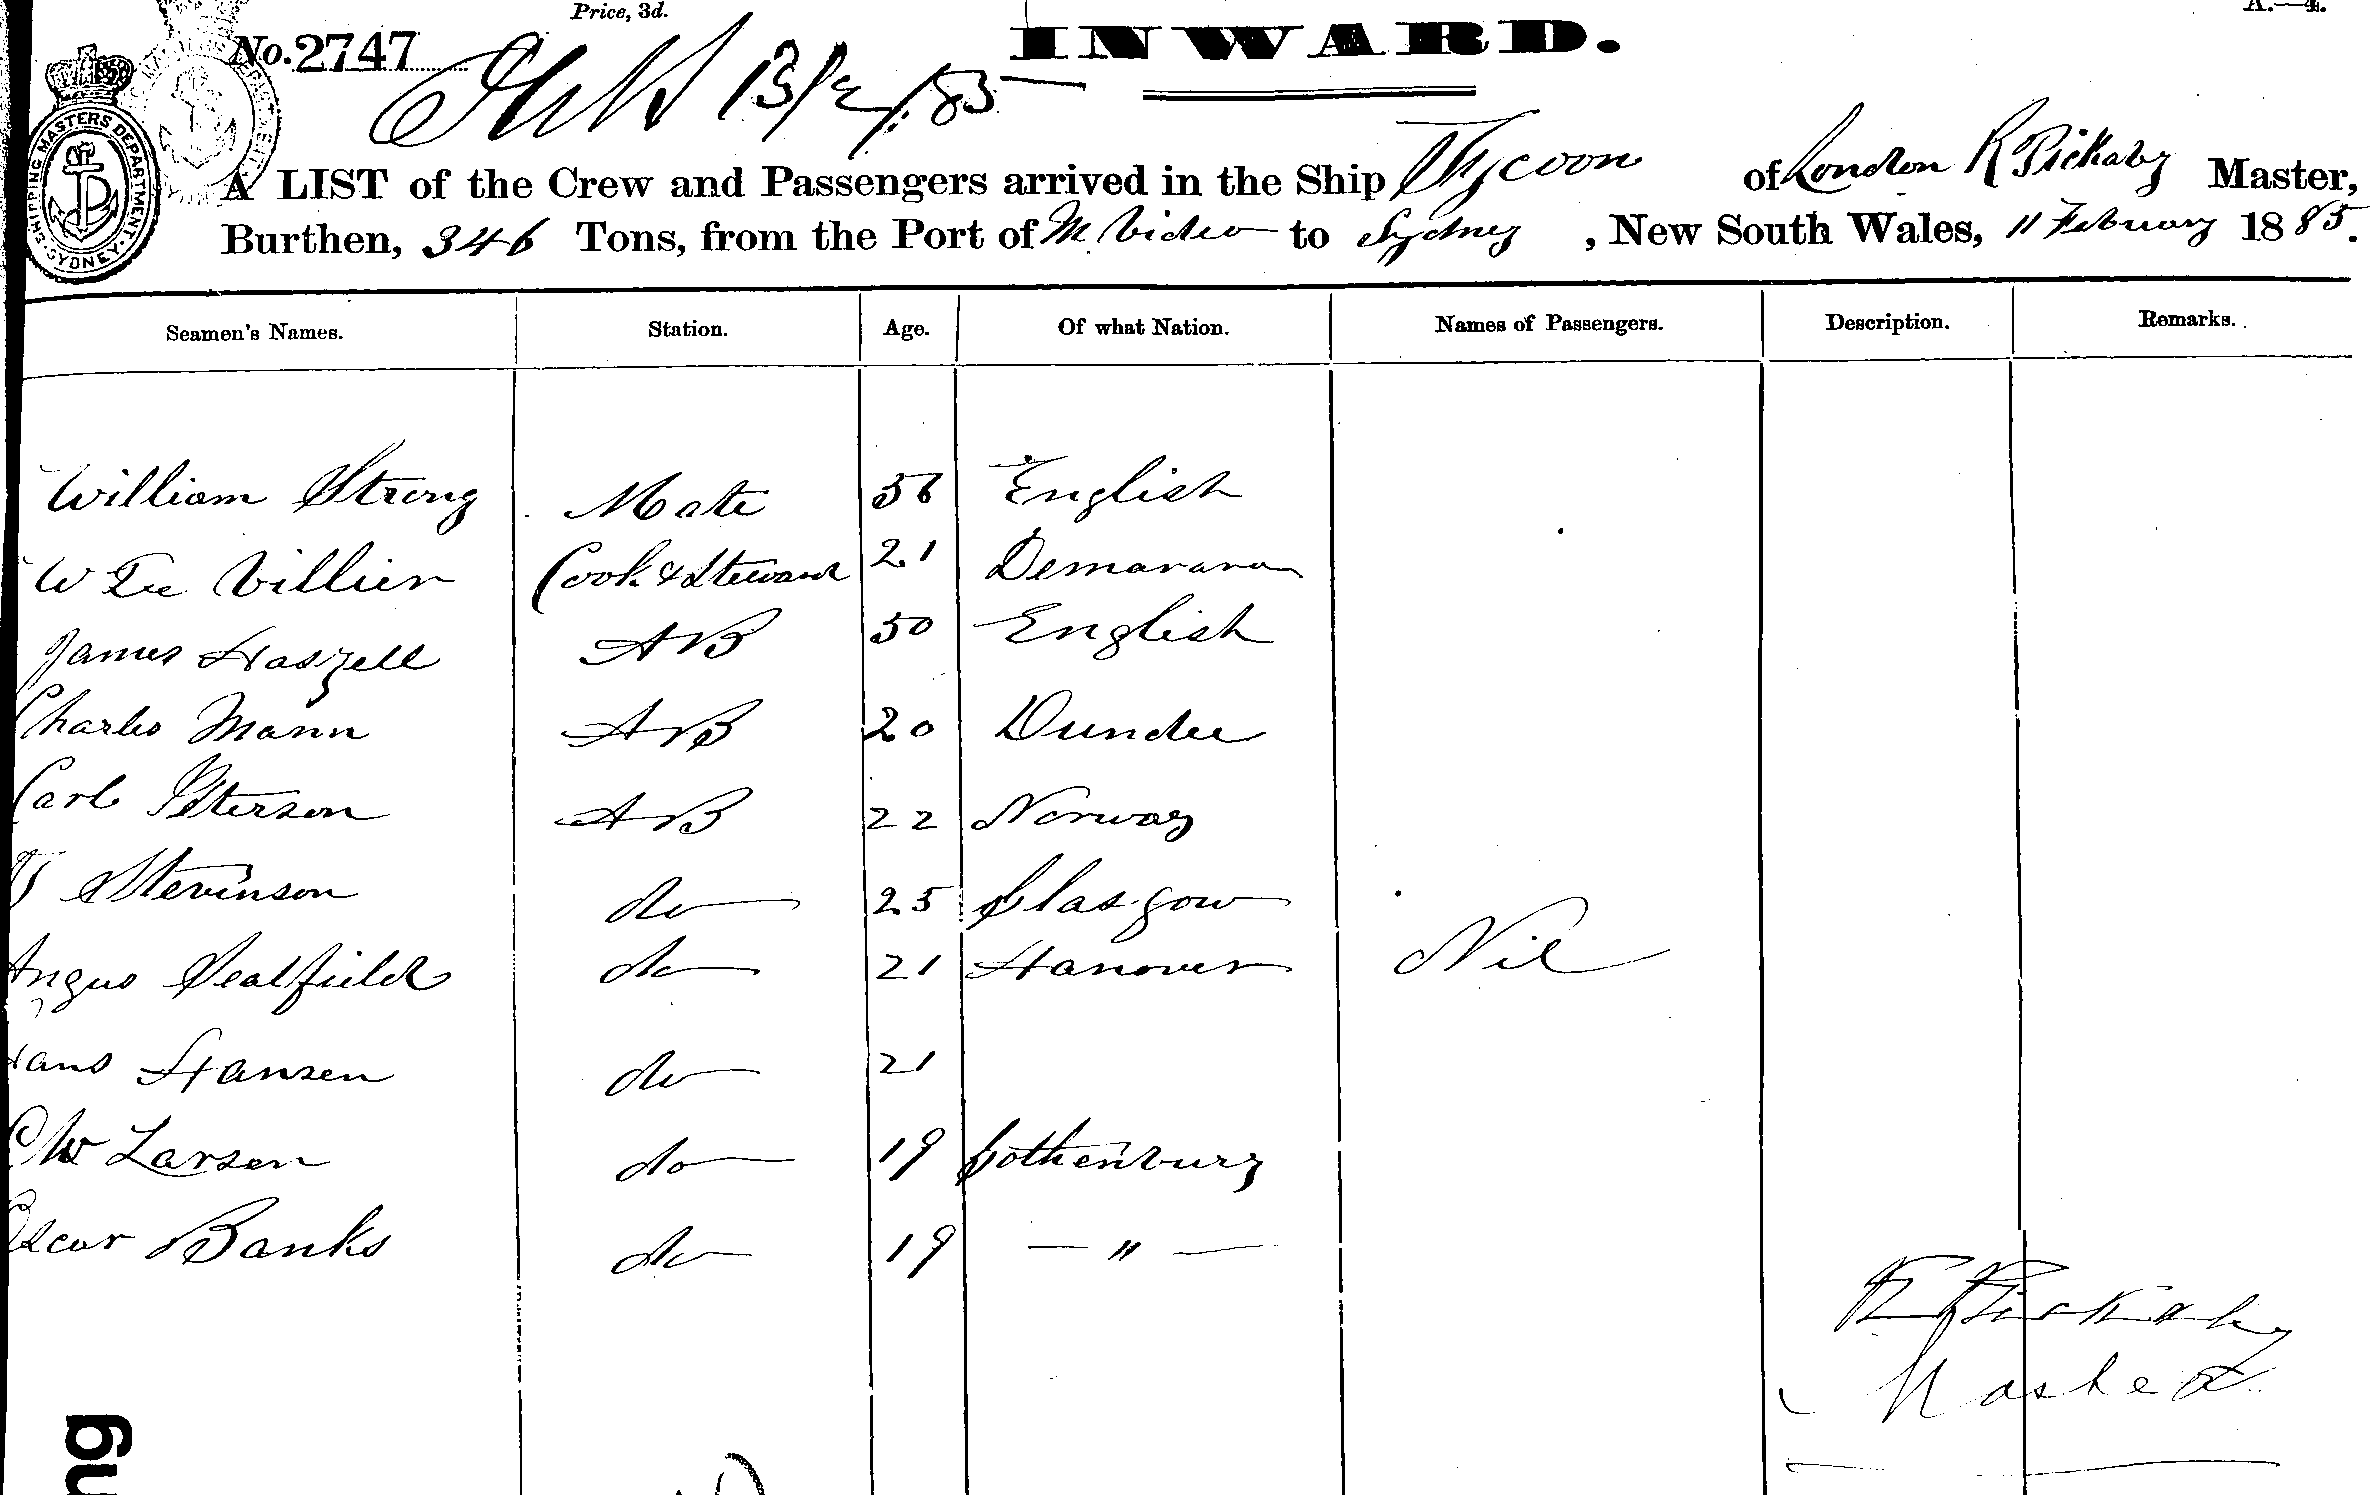 Price, 3d.
A.—4.
No. 2747
INWARD.
13/2/85
SHIPPING MASTERS DEPARTMENT SYDNEY
A LIST of the Crew and Passengers arrived in the Ship Tycoon of London R Pickaby Master,
Burthen, 346 Tons, from the Port of M Video to Sydney, New South Wales, 11 February 1885.
Seamen's Names. Station. Age. Of what Nation. Names of Passengers. Description. Remarks.
William Strong Mate 56 English
W Villier Cook & Steward 21 Demarara
James Haszell AB 50 English
Charles Mann AB 20 Dundee
Carl Peterson AB 22 Norway
Stevinson do 25 Glasgow
Angus Sealfield do 21 Hanover Nil
Hans Hansen do 21
C W Larsen do 19 Gothenburg
Oscar Banks do 19 — " —
R Pickaby
Master
ng